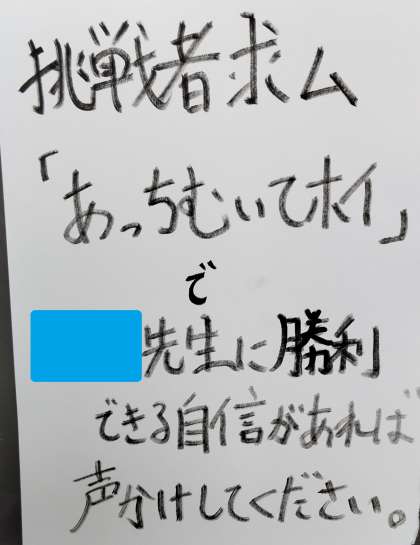 挑戦者求ム
「あっちむいてホイ」
で
先生に勝利
できる自信があれば
声かけしてください。